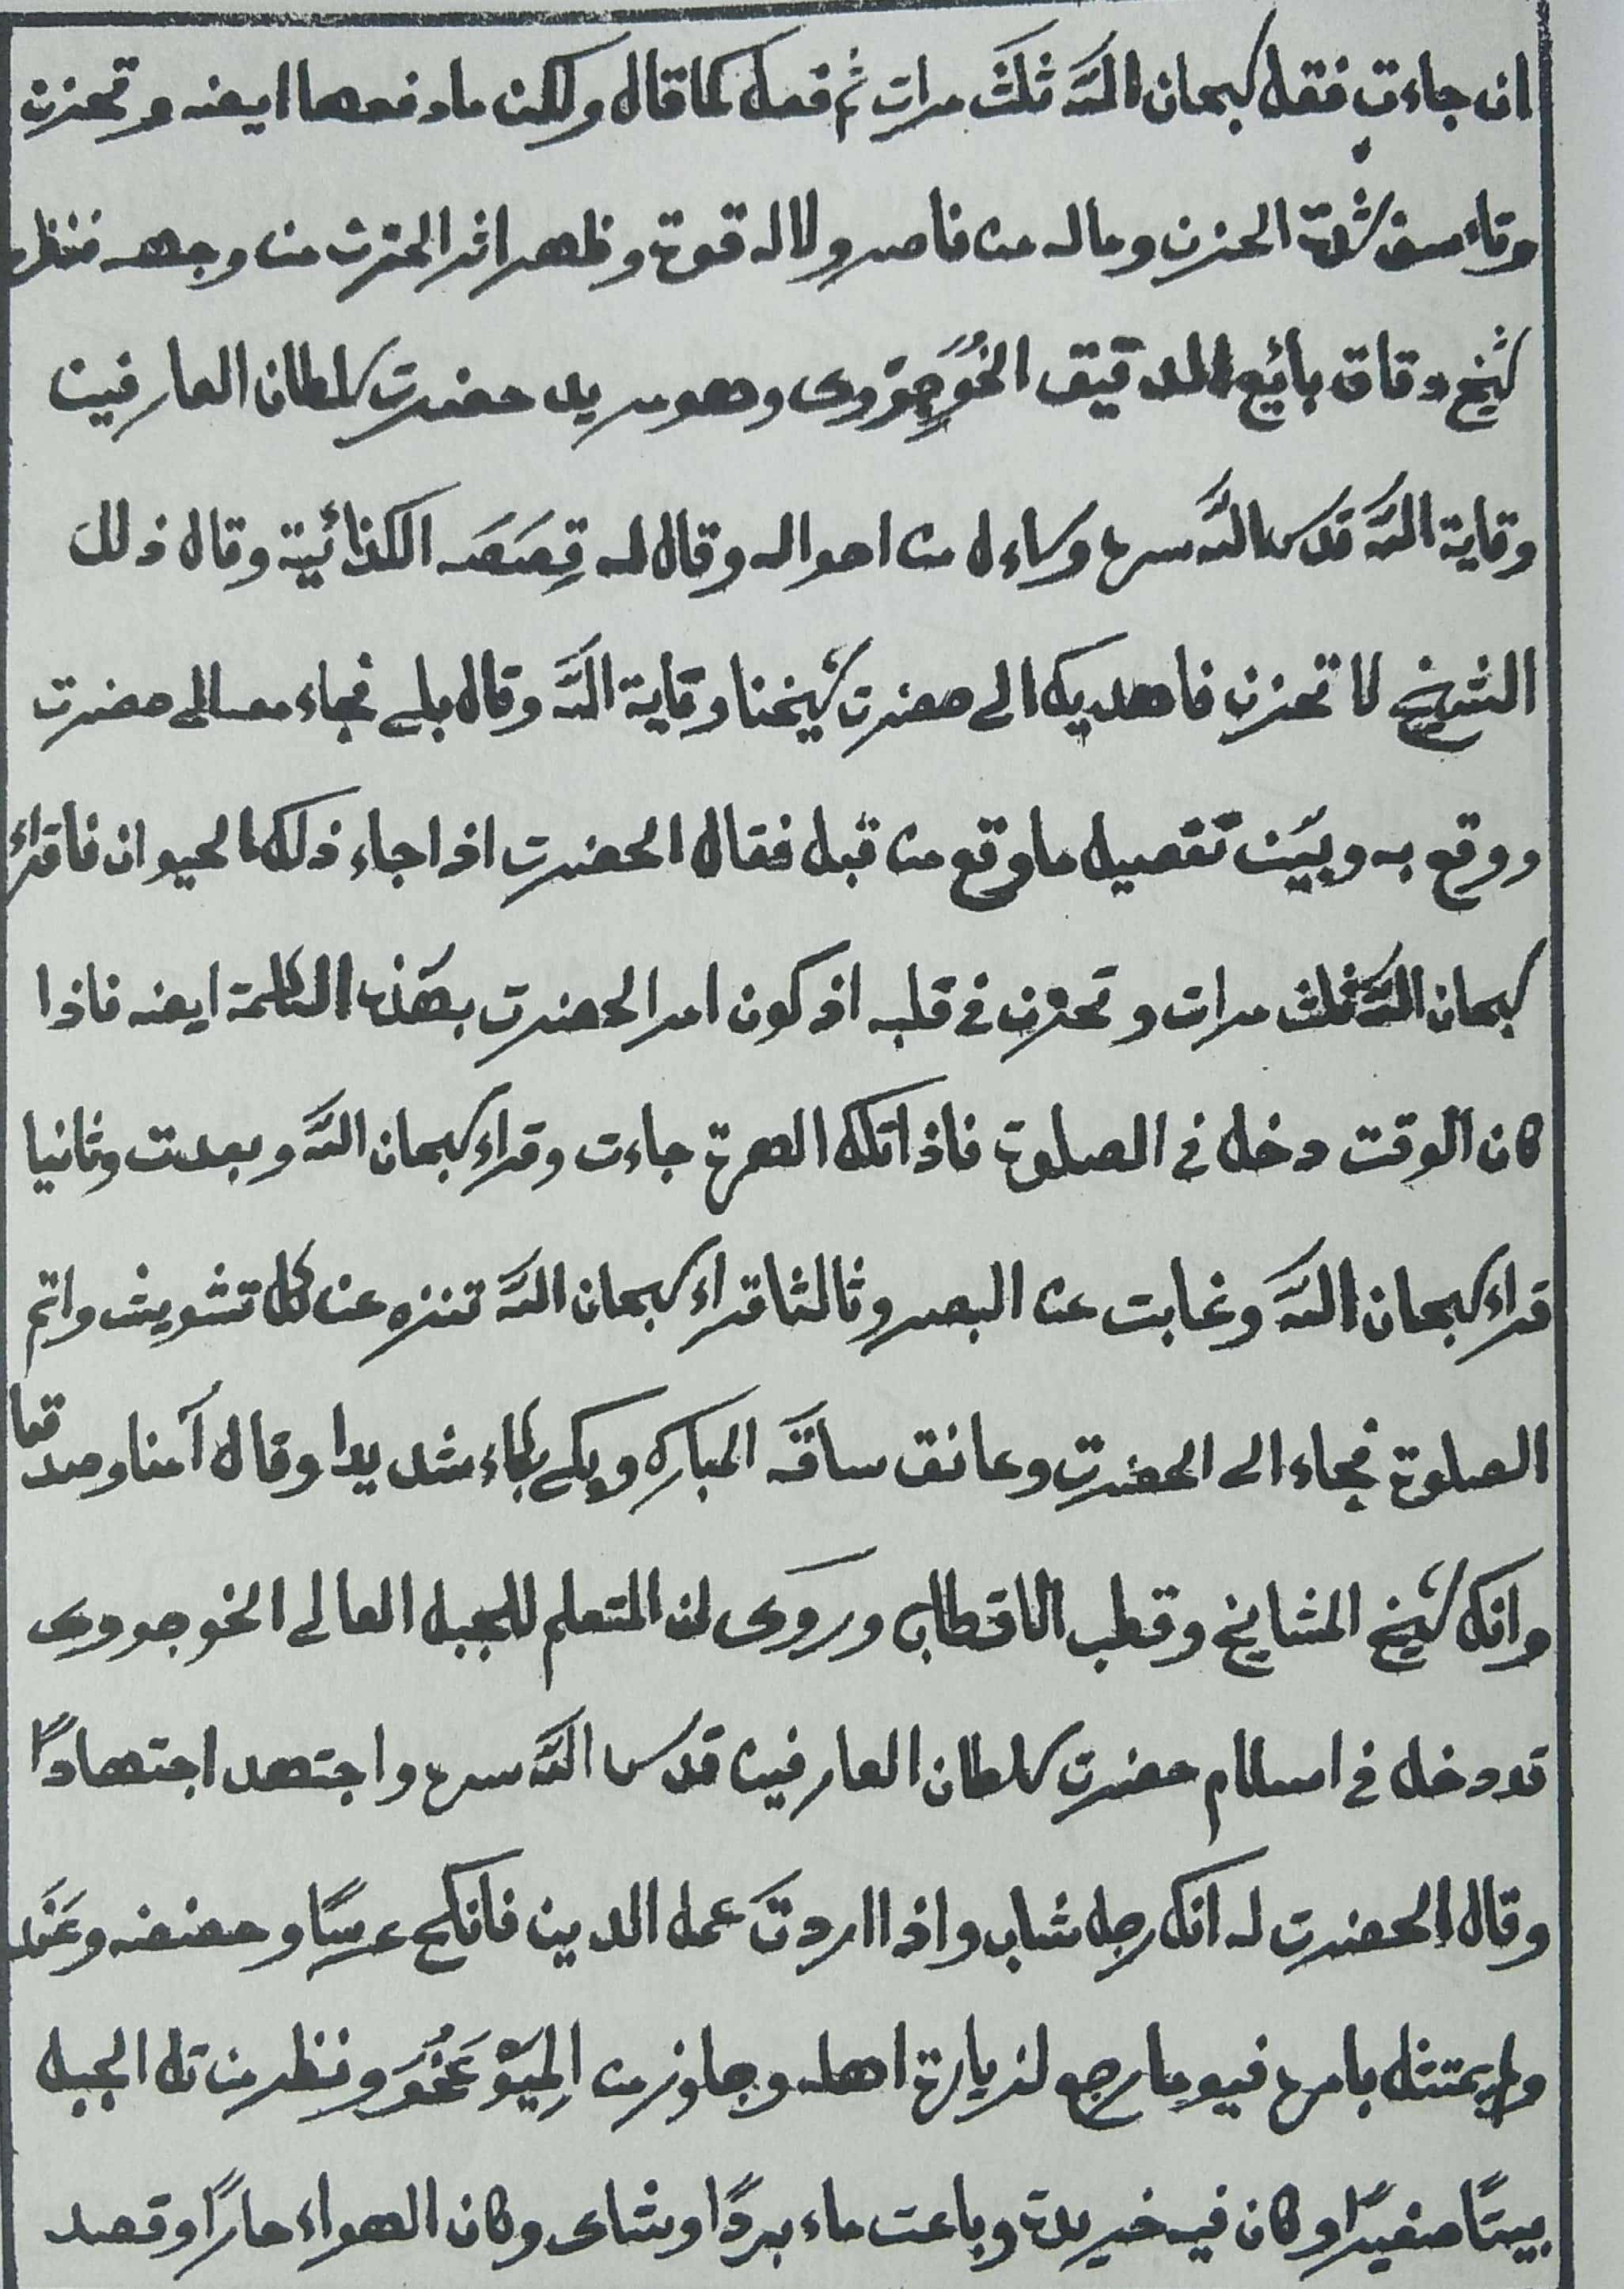 ان جاءت فقل سبحان اللّه ثلث مرات ثم فعل كما قال ولكن ما دفعها ايضه و تحزن
وتاءسف شدة الحزن وماله من ناصر ولا له قوة وظهر اثر الحزن من وجهه فنظر
شيخ دقاق بائع الدقيق الخُوَجِوَوى وهو مريد حضرت سلطان العارفين
وقاية اللّه قدس اللّه سره وساءل من احواله وقال له قِصَصَه الكذائية وقال ذلك
الشيخ لا تحزن فاهديك الى حضرت شيخنا وقاية اللّه وقال بلى فجاء معه الى حضرت
ووقع به وبيّن تفصيل ما وقع من قبل فقال الحضرت اذا جاء ذلك الحيوان فاقراء
سبحان اللّه ثلث مرات و تحزن في قلبه اذ كون امر الحضرت بهٰذه الكلمة ايضه فاذا
كان الوقت دخل في الصلوة فاذا تلك الهرة جاءت وقراء سبحان اللّه و بعدت وثانيا
قراء سبحان اللّه وغابت عن البصر وثالثا قراء سبحان اللّه تنزه عن كل تشويش واتم
الصلوة فجاء الى الحضرت وعانق ساقَه المبارك وبكى بكاء شديدا وقال آمنا وصدقنا
وانك شيخ المشايخ وقطب الاقطاب وروى ان المتعلم للجبل العالى الخوجووى
قد دخل في اسلام حضرت سلطان العارفين قدس اللّه سره واجتهد اجتهادًا
وقال الحضرت له انك رجل شاب واذا اردتَ عمل الدين فانكح عرسًا و حضضه وعَنَد
ولم يمتثل بامره فيوما رجع لزيارة اهله وجاوز من المِيَوْ غَخُوَ و نظر من تل الجبل
بيتًا صغيرًا وكان فيه خريدة وباعت ماء بردًا وشاى وكان الهواء حارًا وقصد